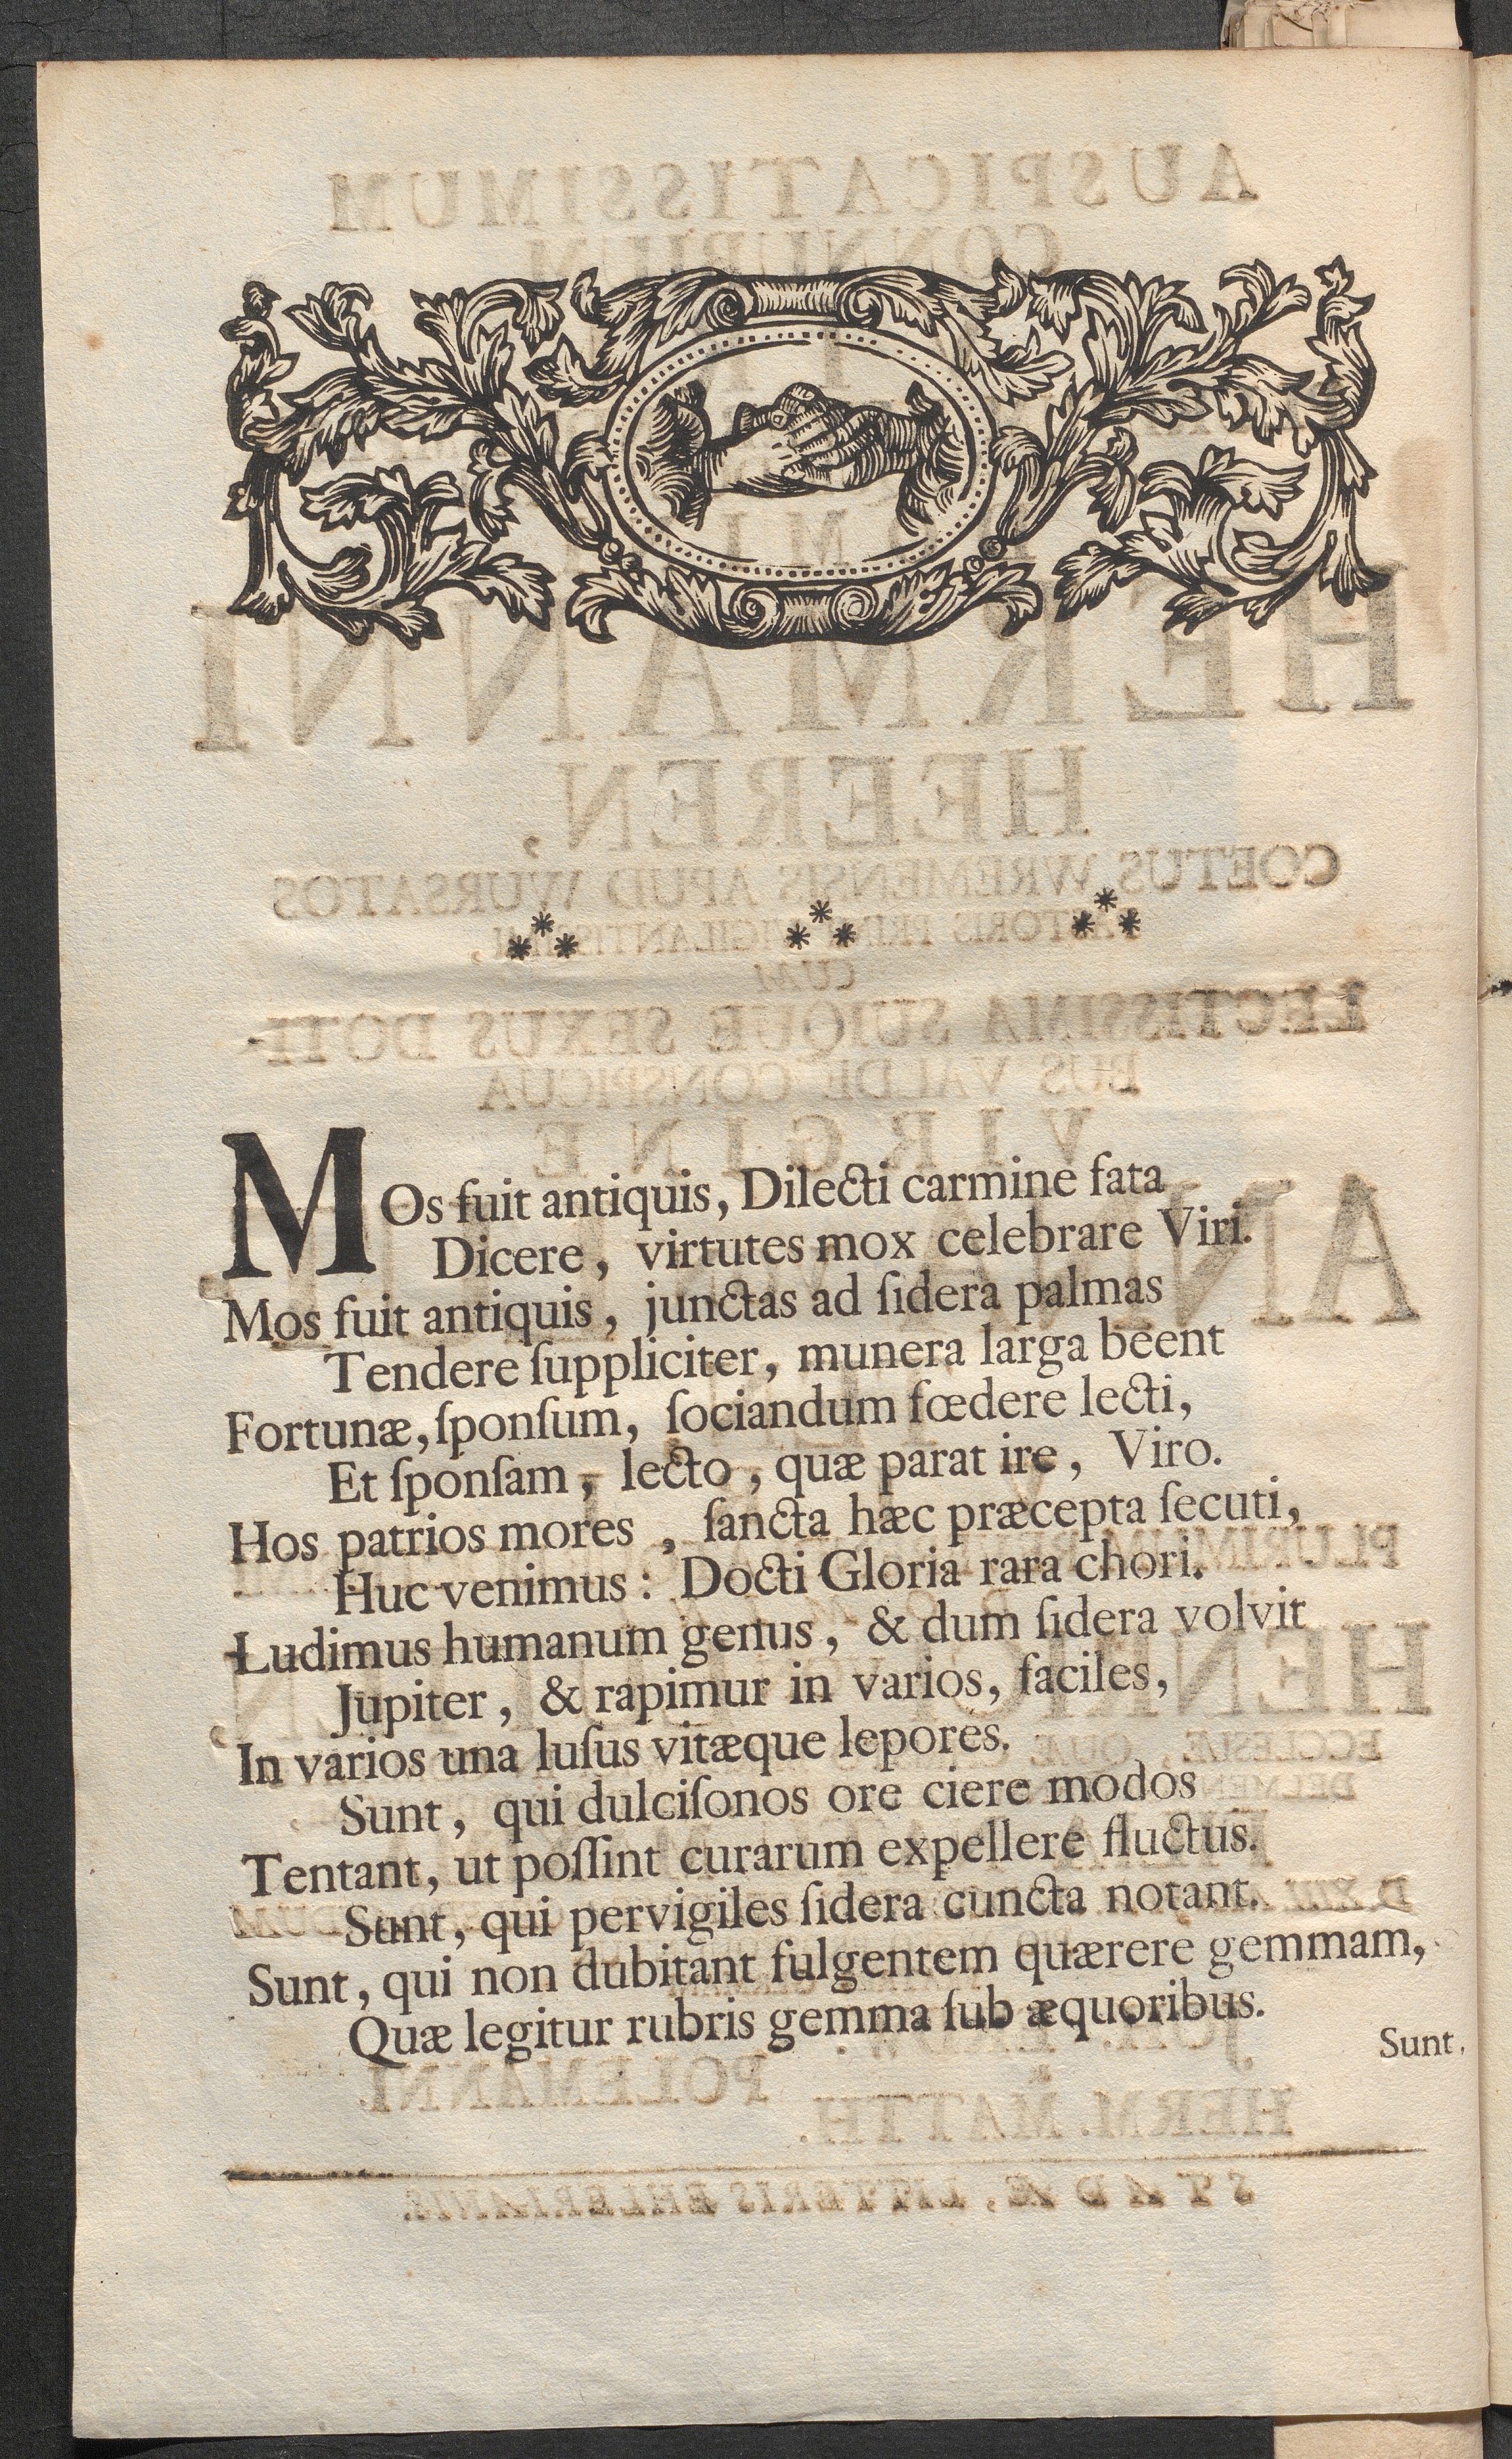 MOs fuit antiquis, Dilecti carmine fata
Dicere, virtutes mox celebrare Viri.
Mos fuit antiquis, junctas ad ſidera palmas
Tendere ſuppliciter, munera larga beent
Fortunæ, ſponſum, ſociandum fœdere lecti,
Et ſponſam, lecto, quæ parat ire, Viro.
Hos patrios mores, ſancta hæc præcepta ſecuti,
Huc venimus: Docti Gloria rara chori.
Ludimus humanum genus, & dum ſidera volvit
Jupiter, & rapimur in varios, faciles,
In varios una luſus vitæque lepores.
Sunt, qui dulciſonos ore ciere modos
Tentant, ut poſſint curarum expellere fluctus.
Sunt, qui pervigiles ſidera cuncta notant.
Sunt, qui non dubitant fulgentem quærere gemmam,
Quæ legitur rubris gemma ſub æquoribus.
Sunt,